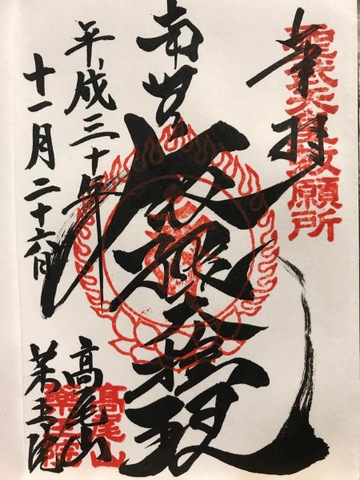 奉拝
聖武天皇勅願所
南無飯縄大権現
平成三十年
十一月二十六日
高尾山
薬王院
高尾山
藥王院